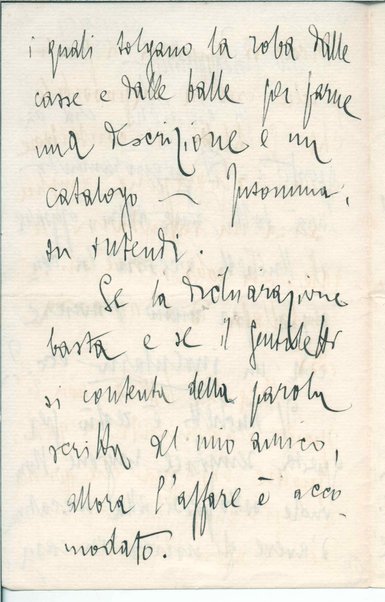 i quali tolgano la roba dalle
casse e dalle balle per farne
una descrizione e un
catalogo — Insomma,
su intendi.
Se la dichiarazione
basta e se il Gentiletti
si contenta della parola
scritta del mio amico,
allora l'affare è acco-
modato.